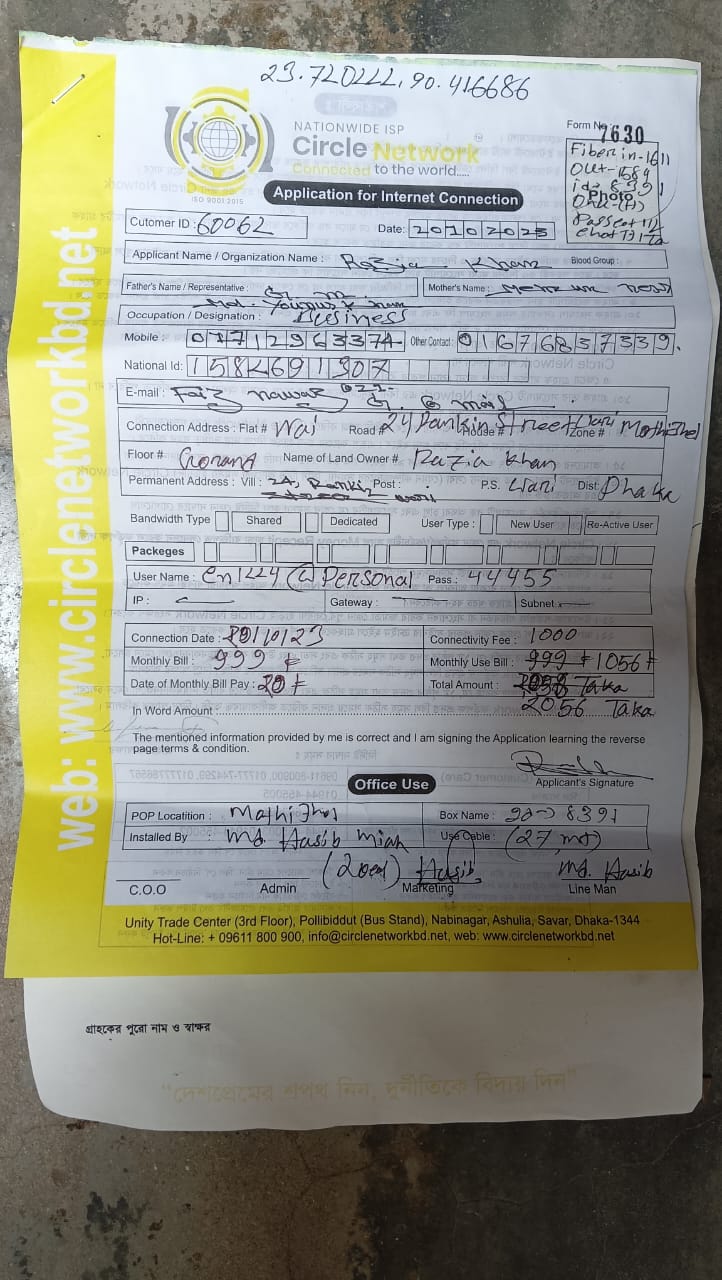 23.720222, 90.416686
NATIONWIDE ISP
Circle Network
Connected to the world.....
ISO 9001:2015
Form No 7630
Fiber in-1611
Out-1589
Photo
Application for Internet Connection
Cutomer ID : 60062
Date: 20102023
Applicant Name / Organization Name : Razia Khan Blood Group :
Father's Name / Representative :
Mother's Name :
Occupation / Designation : Business
Mobile : 01712963374 Other Contact : 01676837339.
National Id : 1584691307
E-mail : Faiz nawaz
Connection Address : Flat # Road # 24 Rankin Street House # Zone # Mothijhel
Floor # Name of Land Owner # Razia Khan
Permanent Address : Vill : 24, Rankin Post : P.S. Wari Dist: Dhaka
Bandwidth Type Shared Dedicated User Type : New User Re-Active User
Packeges
User Name : @ Personal Pass : 44455
IP : Gateway : Subnet :
Connection Date : 20/10/23 Connectivity Fee : 1000
Monthly Bill : 999 ৳ Monthly Use Bill : 999 ৳ 1056 ৳
Date of Monthly Bill Pay : Total Amount : Taka
In Word Amount : 2056 Taka
The mentioned information provided by me is correct and I am signing the Application learning the reverse
page terms & condition.
Applicant's Signature
Office Use
POP Locatition : Mothijhel Box Name : 8391
Installed By Md. Hasib Miah Use Cable : (27 mt)
Hasib Md. Hasib
C.O.O Admin Marketing Line Man
Unity Trade Center (3rd Floor), Pollibiddut (Bus Stand), Nabinagar, Ashulia, Savar, Dhaka-1344
Hot-Line: + 09611 800 900, info@circlenetworkbd.net, web: www.circlenetworkbd.net
web: www.circlenetworkbd.net
গ্রাহকের পুরো নাম ও স্বাক্ষর
“দেশপ্রেমের শপথ নিন, দুর্নীতিকে বিদায় দিন”